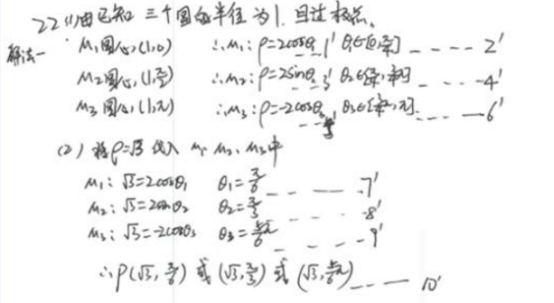 22 (1)由已知 三个圆的半径为1. 且过极点.
解法一 M₁圆心(1,0) ∴M₁: ρ=2cosθ₁ 1' θ₁∈[0,π/4] ---- 2'
M₂圆心(1,π/2) ∴M₂: ρ=2sinθ₂ 3' θ₂∈[π/4,3π/4] ---- 4'
M₃圆心(1,π) ∴M₃: ρ=-2cosθ₃ 5' θ₃∈[3π/4,π] ---- 6'
(2) 将ρ=√3 代入 M₁ M₂ M₃中
M₁: √3=2cosθ₁ θ₁=π/6 ---- 7'
M₂: √3=2sinθ₂ θ₂=π/3 ---- 8'
M₃: √3=-2cosθ₃ θ₃=5π/6 ---- 9'
∴P(√3,π/6) 或 (√3,π/3) 或 (√3,5π/6) ---- 10'